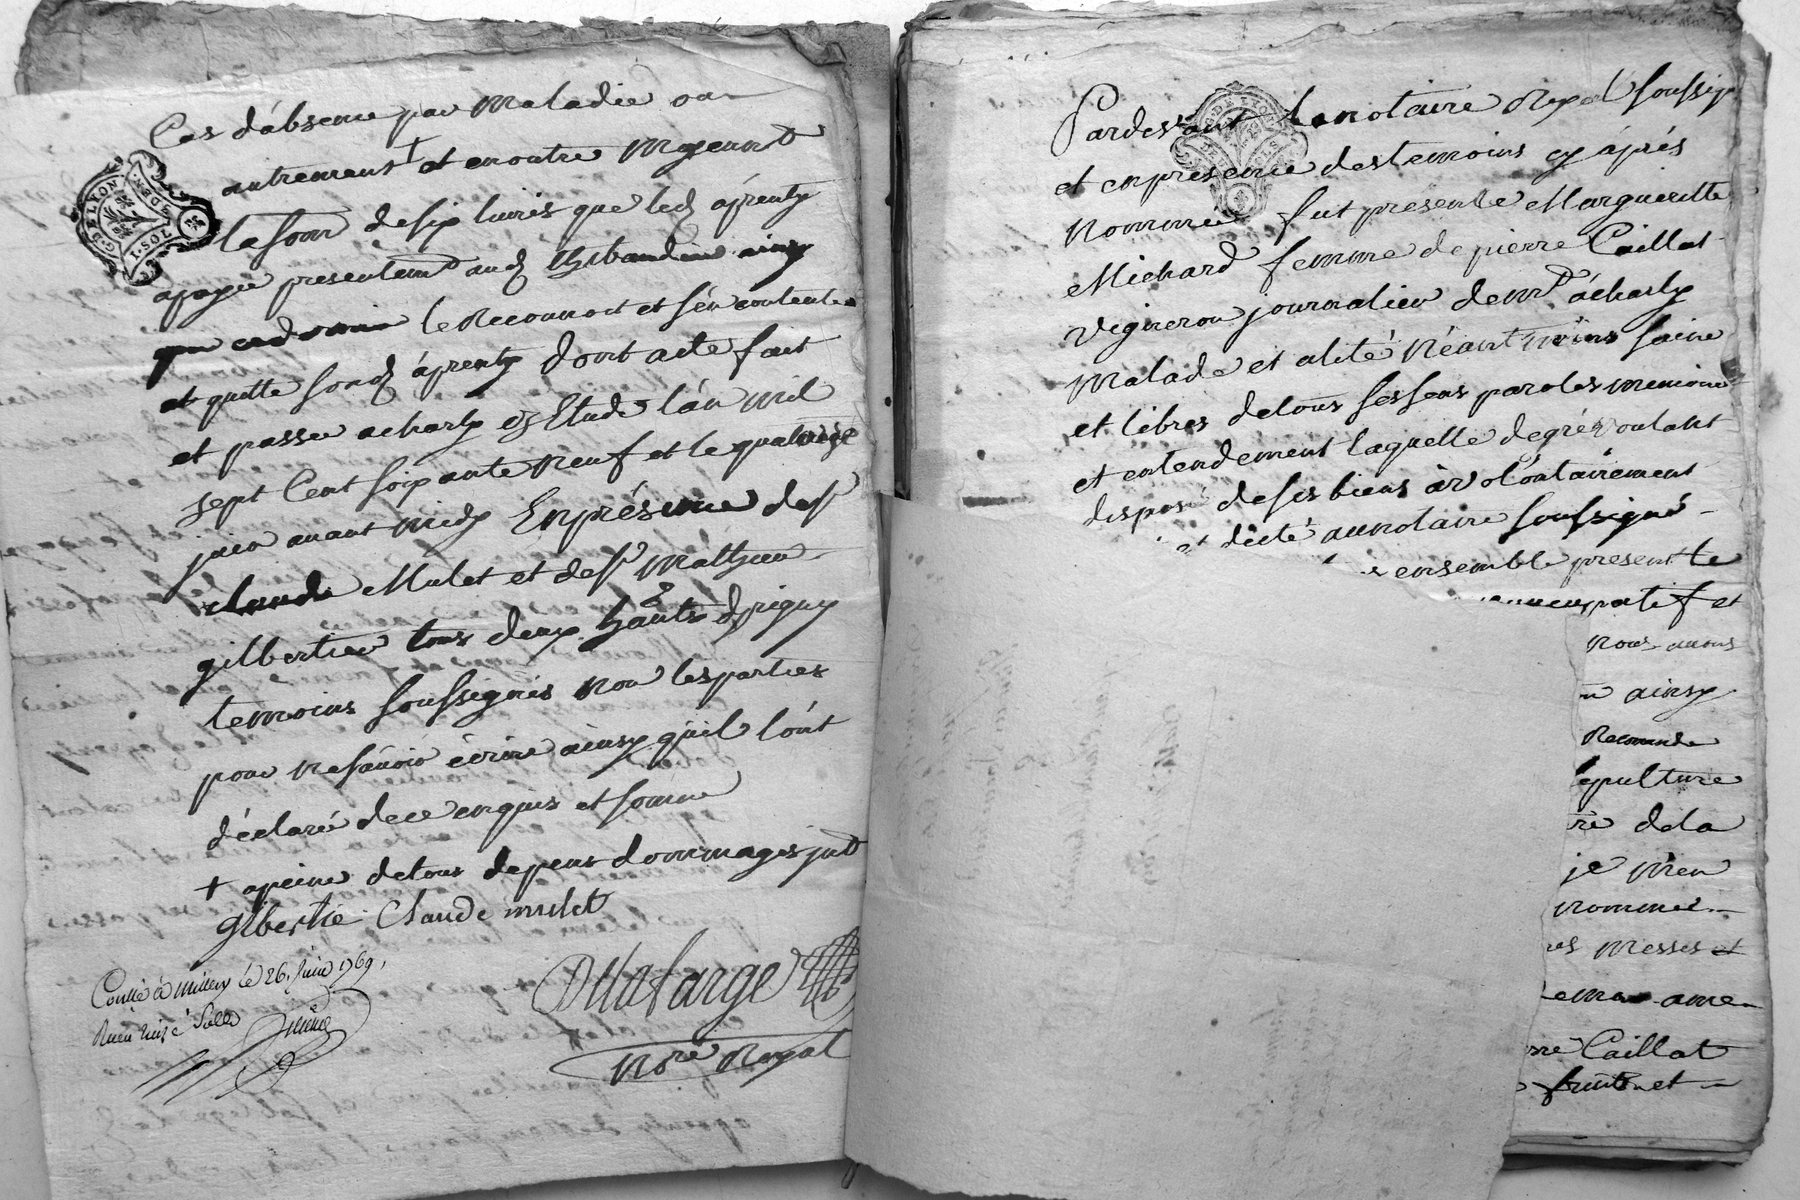 Cas d'absence par maladie ou
autrement + et enoutre moyennt
la som̃e desix livres que led aprenty
apayé presentemt aud Thibaudin ainsy
le Reconnoit et s'en contente
et quitte sond aprenty dont acte fait
et passé a charly Etude l'an mil
sept Cent soixante neuf et le quatorze
juin avant midy Enprésence de sr
claude Mulet et de sr Matthieu
gilbertier tous deux hants d'jrigny
temoins soussignés non lesparties
pour nesavoir écrire ainsy qu'il l'ont
déclaré dece enquis et som̃é
+ apeine detous depens dommages jnt
gilbertié Claude mulet
Conllé à Milley le 26. Juin 1769,
Dllafarge
Nore Royal
G. DE LYON
1. SOL
DEN.
Pardevant le notaire Royal soussigné
et enpresence destemoins cy áprés
nommés fut présente Margueritte
Michard femme de pierre Caillat
vigneron journalier demt à charly
malade et alité néantmoins saine
et libres detous sessens paroles memoire
et entendement laquelle degré voulant
disposé deses biens à volontairement
et dicté aunotaire soussigné
ensemble present te
nuncupatif et
nous avons
ainsy
Recomande
epulture
re dela
je m'en
nommer
es messes et
ema ame
rre Caillat
fruits et